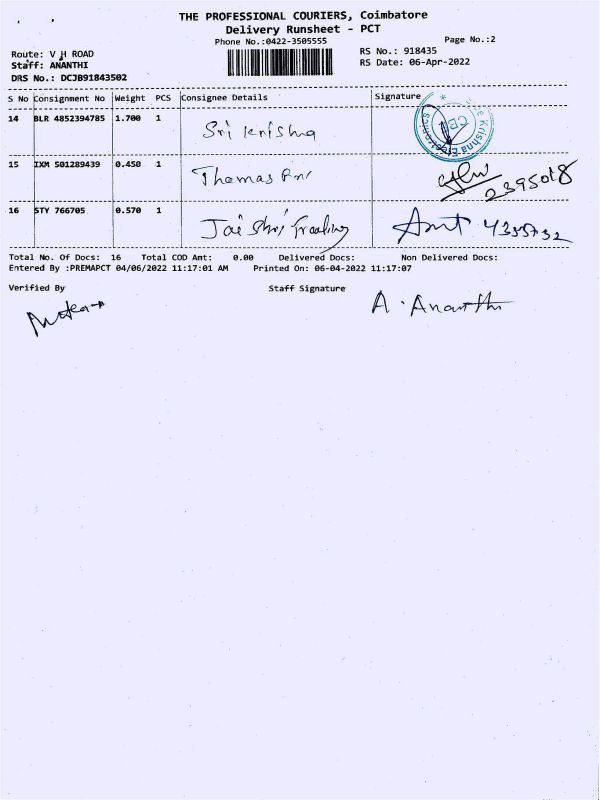 THE PROFESSIONAL COURIERS, Coimbatore
Delivery Runsheet - PCT
Phone No.:0422-3505555
Page No.:2
Route: V H ROAD
RS No.: 918435
Staff: ANANTHI
RS Date: 06-Apr-2022
DRS No.: DCJB91843502
S No Consignment No Weight PCS Consignee Details Signature
14 BLR 4852394785 1.700 1 Sri krishna
15 IXM 501289439 0.450 1 Thomas 2395018
16 STY 766705 0.570 1 Jai Shri 4355732
Total No. Of Docs: 16 Total COD Amt: 0.00 Delivered Docs: Non Delivered Docs:
Entered By :PREMAPCT 04/06/2022 11:17:01 AM Printed On: 06-04-2022 11:17:07
Verified By Staff Signature
A. Ananthi